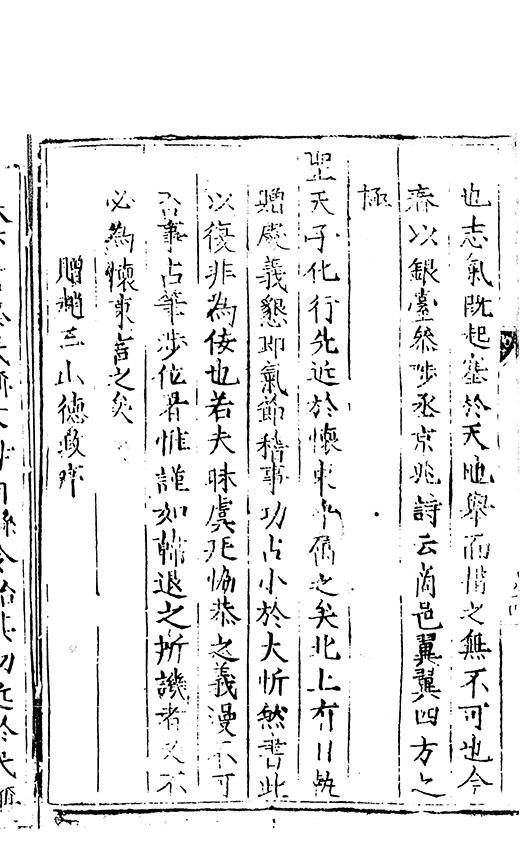 也志氣既起塞於天地舉而措之無不可也今
春以銀臺叅陟丞京兆詩云商邑翼翼四方之
極
聖天子化行先近於懷東乎屬之矣北上有日執
贈處義懇即氣節稽事功占小於大忻然書此
以復非為佞也若夫昧虞廷協恭之義漫不可
否事占筆涉位署惟謹如韓退之所譏者又不
必為懷東言之矣
贈趙三山德政序